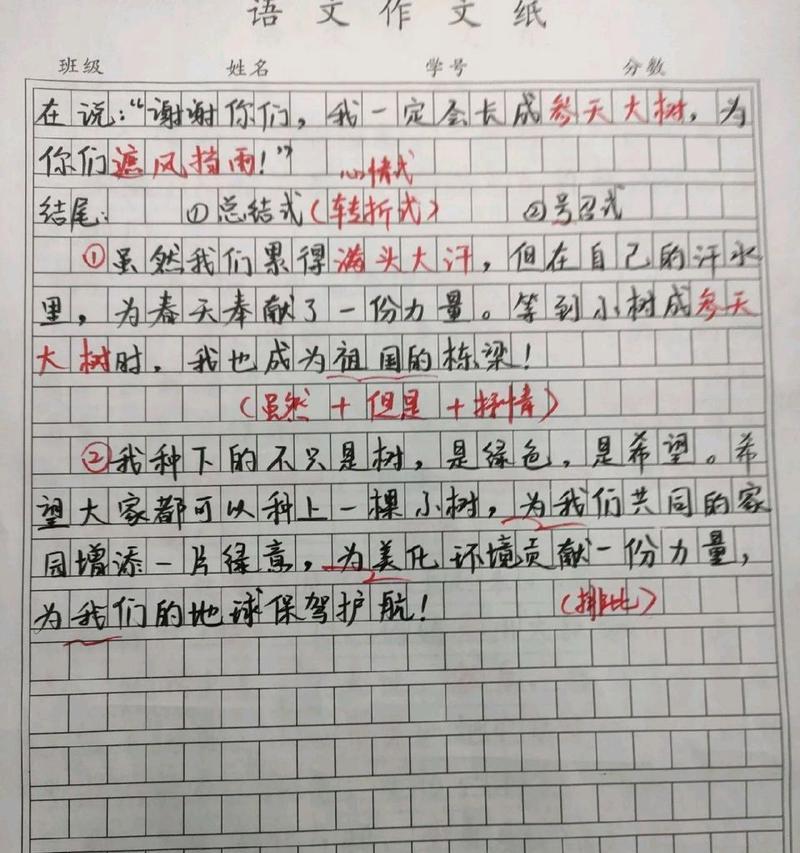 语文作文纸
班级 姓名 学号 分数
在说:“谢谢你们,我一定会长成参天大树,为
你们遮风挡雨!”
心情式
结尾: ①总结式(转折式) ②号召式
①虽然我们累得满头大汗,但在自己的汗水
里,为春天奉献了一份力量。等到小树成参天
大树时,我也成为祖国的栋梁!
(虽然+但是+抒情)
②我种下的不只是树,是绿色,是希望。希
望大家都可以种上一棵小树,为我们共同的家
园增添一片绿意,为美化环境贡献一份力量,
为我们的地球保驾护航!
(排比)